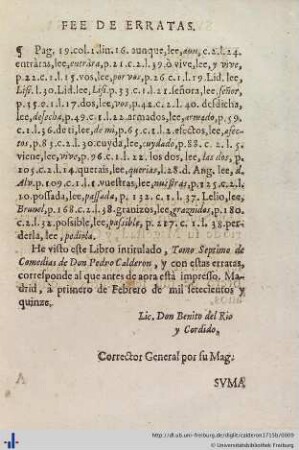 FEE DE ERRATAS.
¶ Pag. 19.col.1.lin.16. aunque, lee, aun, c.2.l.24.
entraras, lee, entrára, p.21.c.2.l.39.ò vive, lee, y vive,
p.22.c.1.l.15.vos, lee, por vos, p.26.c.1.l.19.Lid.lee,
Lisi. l.30.Lid.lee, Lisi. p.33.c.1.l.21.señora, lee, señor,
p.35.c.1.l.17.dos, lee, vos, p.42.c.2.l.40. desdicha,
lee, desecha, p.49.c.1.l.22.armados, lee, armado, p.59.
c.1.l.36.de ti, lee, de mi, p.65.c.2.l.2.efectos, lee, afec-
tos, p.83.c.2.l.30.cuyda, lee, cuydado, p.88. c.2. l.5.
viene, lee, vive, p.96.c.1.l.22. los dos, lee, las dos, p.
105.c.2.l.24.querais, lee, querias, l.28.d. Ang. lee, d.
Alv. p.109.c.1.l.1.vuestras, lee, nuestras, p.125.c.2.l.
10.possada, lee, passada, p. 132. c.1.l.37. Lelio, lee,
Brunel, p.168.c.2.l.38.granizos, lee, graznidos, p.180.
c.2.l.32.possible, lee, passible, p.217. c.1.l.38.per-
derla, lee, pediola.
He visto este Libro intitulado, Tomo Septimo de
Comedias de Don Pedro Calderon, y con estas erratas,
corresponde al que antes de aora està impresso. Ma-
drid, à primero de Febrero de mil setecientos y
quinze.
Lic. Don Benito del Rio
y Cordido,
Corrector General por su Mag.
SVMA
http://dl.ub.uni-freiburg.de/diglit/calderon1715b/0009
© Universitätsbibliothek Freiburg